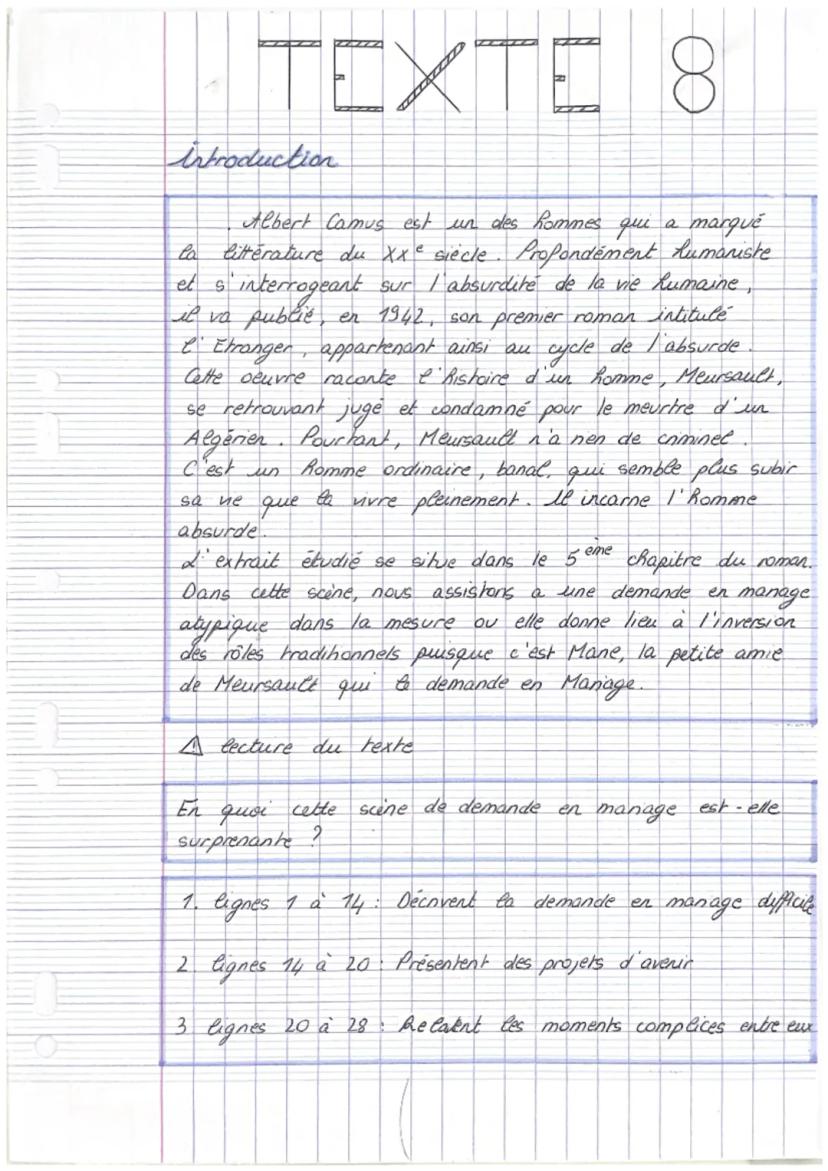 TEXTE 8
Introduction
Albert Camus est un des hommes qui a marqué
la littérature du XXe siècle. Profondément humaniste
et s'interrogeant sur l'absurdité de la vie humaine,
il va publié, en 1942, son premier roman intitulé
l'Etranger, appartenant ainsi au cycle de l'absurde.
Cette oeuvre raconte l'histoire d'un homme, Meursault,
se retrouvant jugé et condamné pour le meurtre d'un
Algérien. Pourtant, Meursault n'a rien de criminel.
C'est un homme ordinaire, banal, qui semble plus subir
sa vie que la vivre pleinement. Il incarne l'homme
absurde.
L'extrait étudié se situe dans le 5ème chapitre du roman.
Dans cette scène, nous assistons a une demande en mariage
atypique dans la mesure ou elle donne lieu à l'inversion
des rôles traditionnels puisque c'est Marie, la petite amie
de Meursault qui le demande en Mariage.
⚠ lecture du texte
En quoi cette scène de demande en mariage est-elle
surprenante ?
1. lignes 1 à 14 : Décrivent la demande en mariage difficile
2. lignes 14 à 20 : Présentent des projets d'avenir
3 lignes 20 à 28 : Relatent les moments complices entre eux